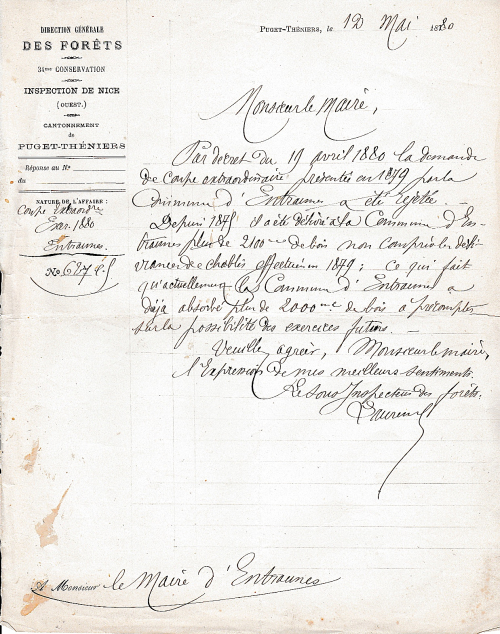 DIRECTION GÉNÉRALE
DES FORÊTS
34me CONSERVATION
INSPECTION DE NICE
(OUEST.)
CANTONNEMENT
de
PUGET-THÉNIERS
Réponse au No
du
NATURE DE L'AFFAIRE :
Coupe Extraordre
Exer. 1880
Entraunes.
No 627
PUGET-THÉNIERS, le 12 Mai 1880
Monsieur le Maire,
Par décret du 19 avril 1880 la demande
de coupe extraordinaire présentée en 1879 par la
Commune d'Entraunes a été rejetée.
Depuis 1875 il a été délivré à la Commune d'En-
traunes plus de 2100 mc de bois non compris les déli-
vrances de chablis effectuées en 1879 ; ce qui fait
qu'actuellement la Commune d'Entraunes a
déjà absorbé plus de 2000 mc de bois à précompter
sur la possibilité des exercices futurs. —
Veuillez agréer, Monsieur le maire,
l'Expression de mes meilleurs sentiments.
Le Sous Inspecteur des forêts.
A Monsieur le Maire d'Entraunes